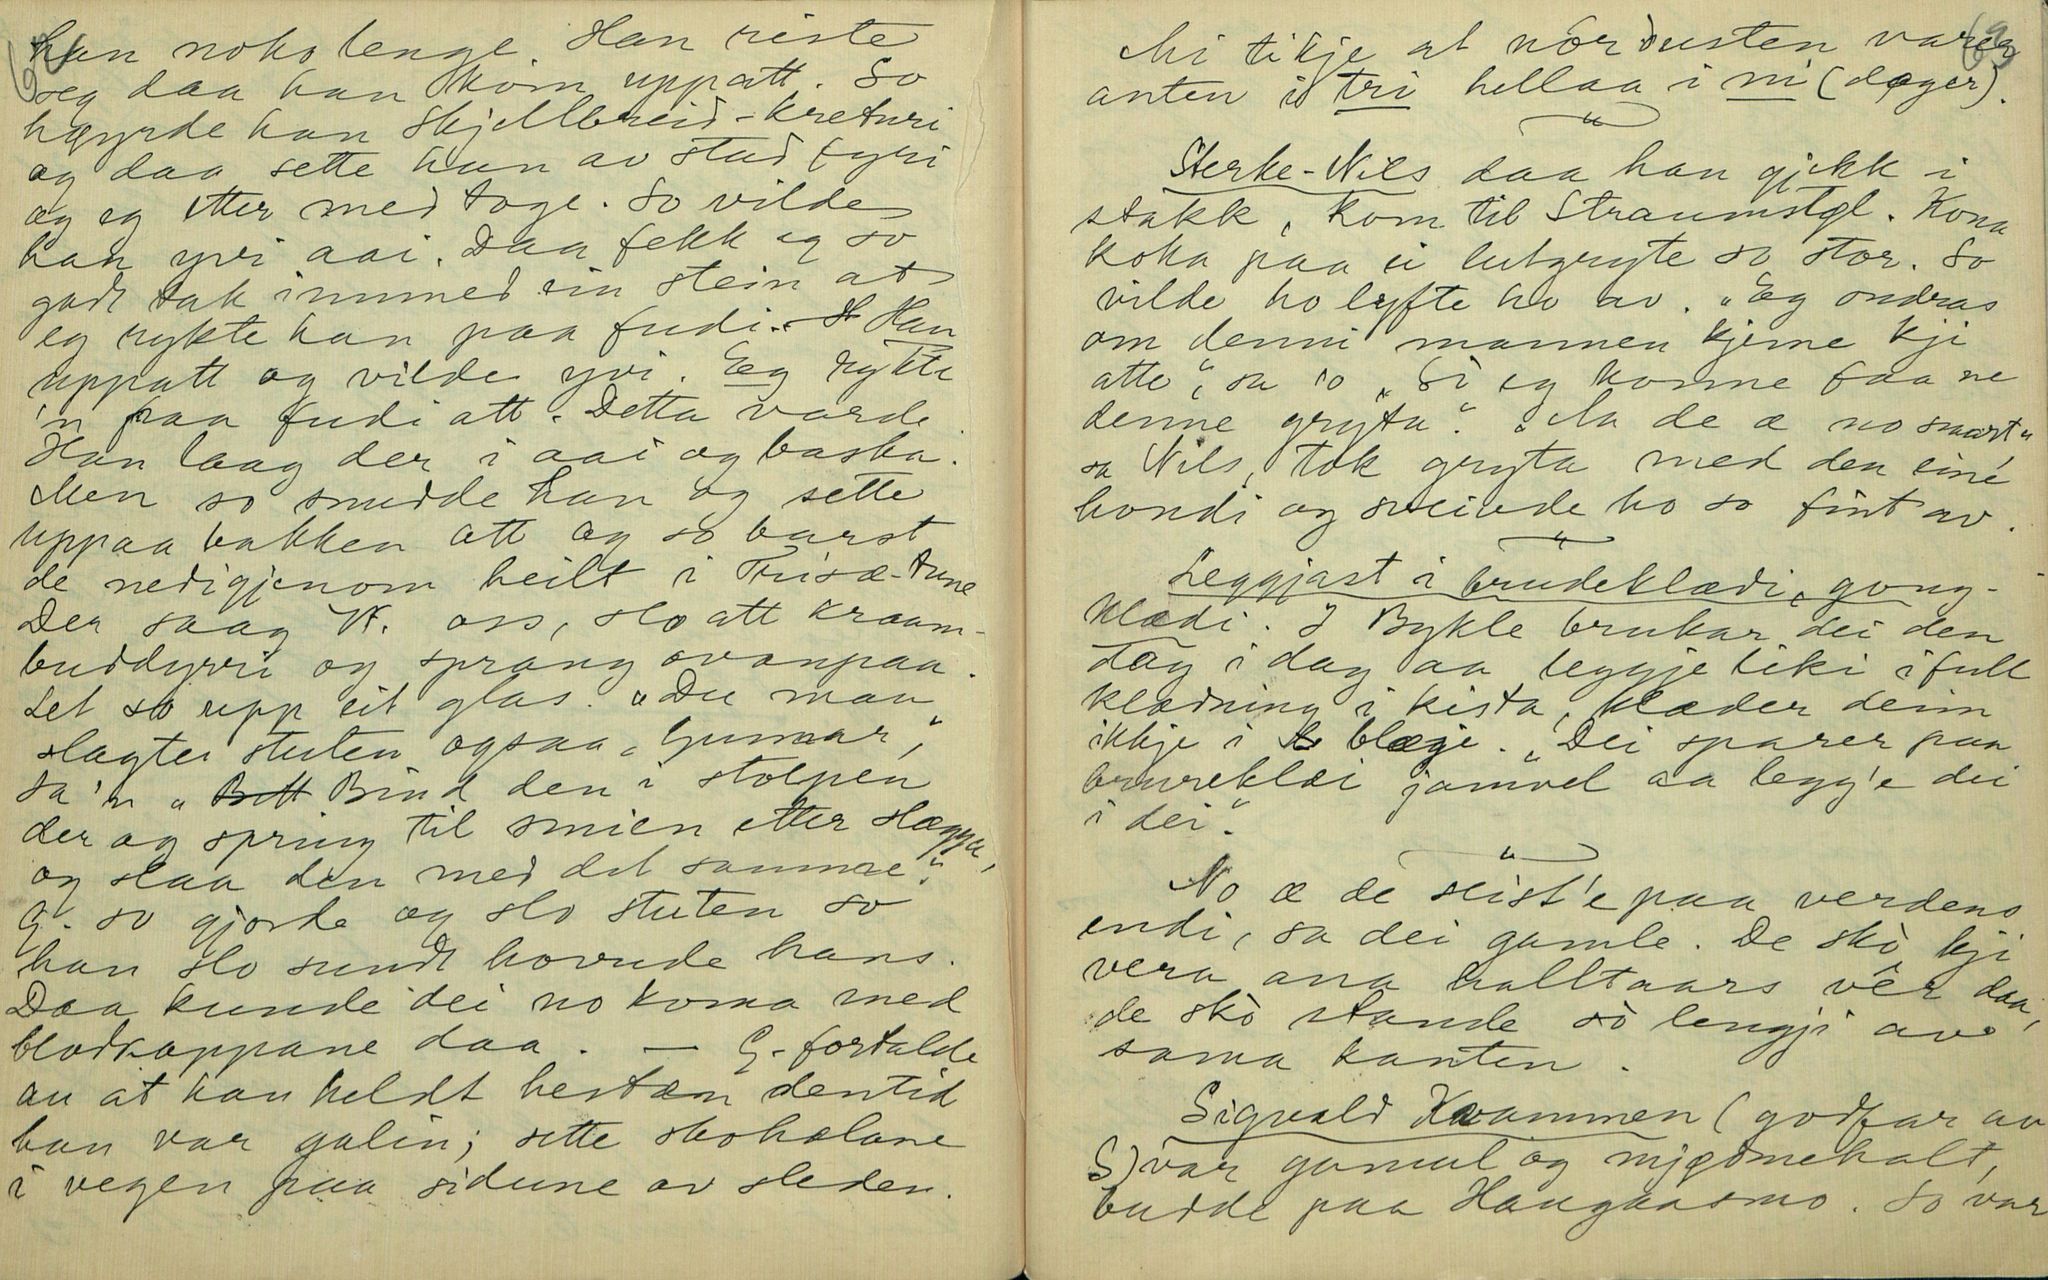 han noko lenge. Han riste
seg daa han kom uppatt. So
høyrde han Skjellbreid-kreturi
og daa sette han av stad fyri
og eg etter med toge. So vilde
han yvi aai. Daa fekk eg so
godt tak i med ein stein at
eg rykte han paa fudi. Han
uppatt og vilde yvi. Eg rykte
'n paa fudi att. Detta varde.
Han laag der i aai og baska.
Men so snudde han og sette
uppaa bakken att og so barst
de nedigjenom heilt i Trisæ-tune
Der saag W. oss, slo att kraam-
buddyri og sprang ovanpaa.
Let so upp eit glas. "Du maa
slagte stuten ogsaa, Gunnar,"
sa'n "Bitt Bind den i stolpen
der og spring til smien etter slægga,
og slaa den med det samme".
G. so gjorde og slo stuten so
han slo sundt hovude hans.
Daa kunde dei no koma med
blodkoppane daa. — G. fortalde
au at han heldt hestan dentid
han var galin; sette skohælane
i vegen paa sidune av sleden.
69
Mi tikje at nordusten varer
anten i tri hellaa i ni (dager).
"
Sterke-Nils daa han gjekk i
stakk, kom til Straumstøl. Kona
koka paa ei lutgryte so stor. So
vilde ho lyfte ho av. "Eg ondras
om denni mannen kjeme kji
atte", sa 'o "Si eg konne faa ne
denne gryta". "Aa de æ no snart"
sa Nils, tok gryta med den eine
hondi og sveivde ho so fint av.
"
Leggjast i brudeklædi, gong-
klædi. I Bykle brukar dei den
dag i dag aa leggje liki i full
klædning i kista, klæder deim
ikkje i blæje. "Dei sparer paa
brureklæi jamvel aa legg'e dei
i dei".
"
No æ de seist'e paa verdens
endi, sa dei gamle. De skò kji
vera ana halltaars vêr daa,
de skò stande sò lengji av
sama kanten.
Sigvald Kvammen (godfar av
S) var gamal og mjødmehalt,
budde paa Haugaasmo. So var